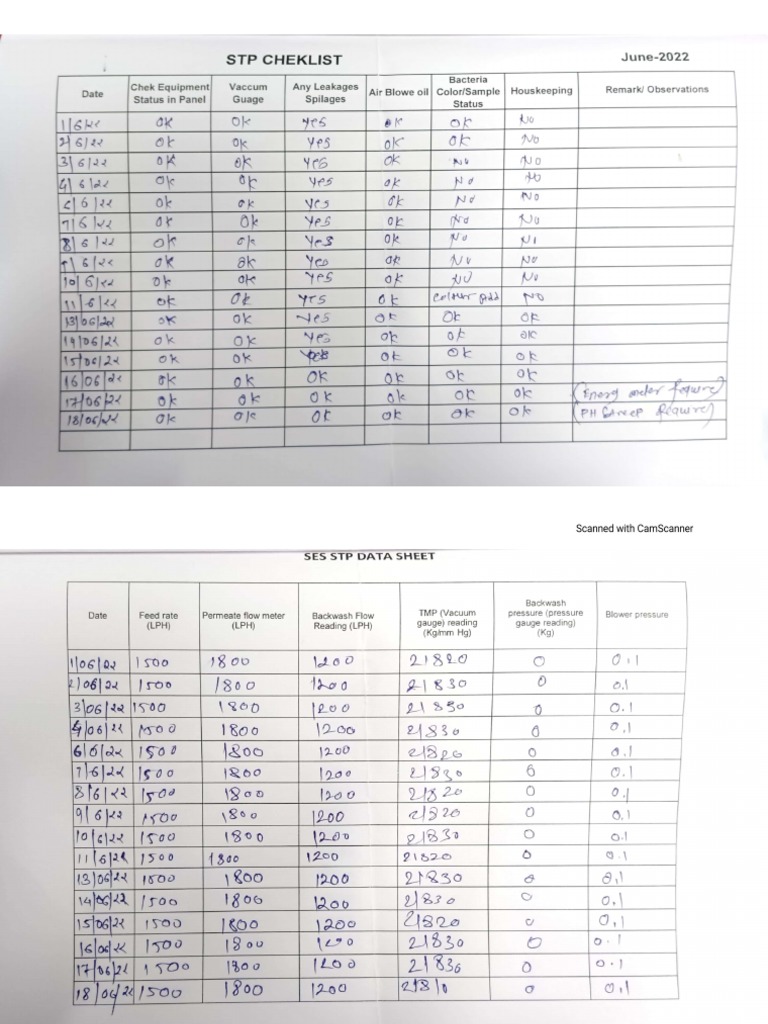 STP CHEKLIST June-2022
Date Chek Equipment Status in Panel Vaccum Guage Any Leakages Spilages Air Blowe oil Bacteria Color/Sample Status Houskeeping Remark/ Observations
1/6/22 ok ok yes ok ok No
2/6/22 ok ok yes ok ok No
3/6/22 ok ok yes ok No No
4/6/22 ok ok yes ok No No
6/6/22 ok ok yes ok No No
7/6/22 ok ok Yes ok No No
8/6/22 ok ok Yes ok No
9/6/22 ok ok Yes ok No No
10/6/22 ok ok yes ok No No
11/6/22 ok ok yes ok Colour No
13/06/22 ok ok Yes ok ok ok
14/06/22 ok ok Yes ok ok ok
15/06/22 ok ok ok ok ok
16/06/22 ok ok ok ok ok ok
17/06/22 ok ok ok ok ok ok (Energy meter Require)
18/06/22 ok ok ok ok ok ok (PH Require)
Scanned with CamScanner
SES STP DATA SHEET
Date Feed rate (LPH) Permeate flow meter (LPH) Backwash Flow Reading (LPH) TMP (Vacuum gauge) reading (Kg/mm Hg) Backwash pressure (pressure gauge reading) (Kg) Blower pressure
1/06/22 1500 1800 1200 21820 0 0.1
2/06/22 1500 1800 1200 21830 0 0.1
3/06/22 1500 1800 1200 21830 0 0.1
4/06/22 1500 1800 1200 21830 0 0.1
6/6/22 1500 1800 1200 21820 0 0.1
7/6/22 1500 1800 1200 21830 0 0.1
8/6/22 1500 1800 1200 21820 0 0.1
9/6/22 1500 1800 1200 21820 0 0.1
10/6/22 1500 1800 1200 21830 0 0.1
11/6/22 1500 1800 1200 21820 0 0.1
13/06/22 1500 1800 1200 21830 0 0.1
14/06/22 1500 1800 1200 21830 0 0.1
15/06/22 1500 1800 1200 21820 0 0.1
16/06/22 1500 1800 1200 21830 0 0.1
17/06/22 1500 1800 1200 21830 0 0.1
18/06/22 1500 1800 1200 21810 0 0.1